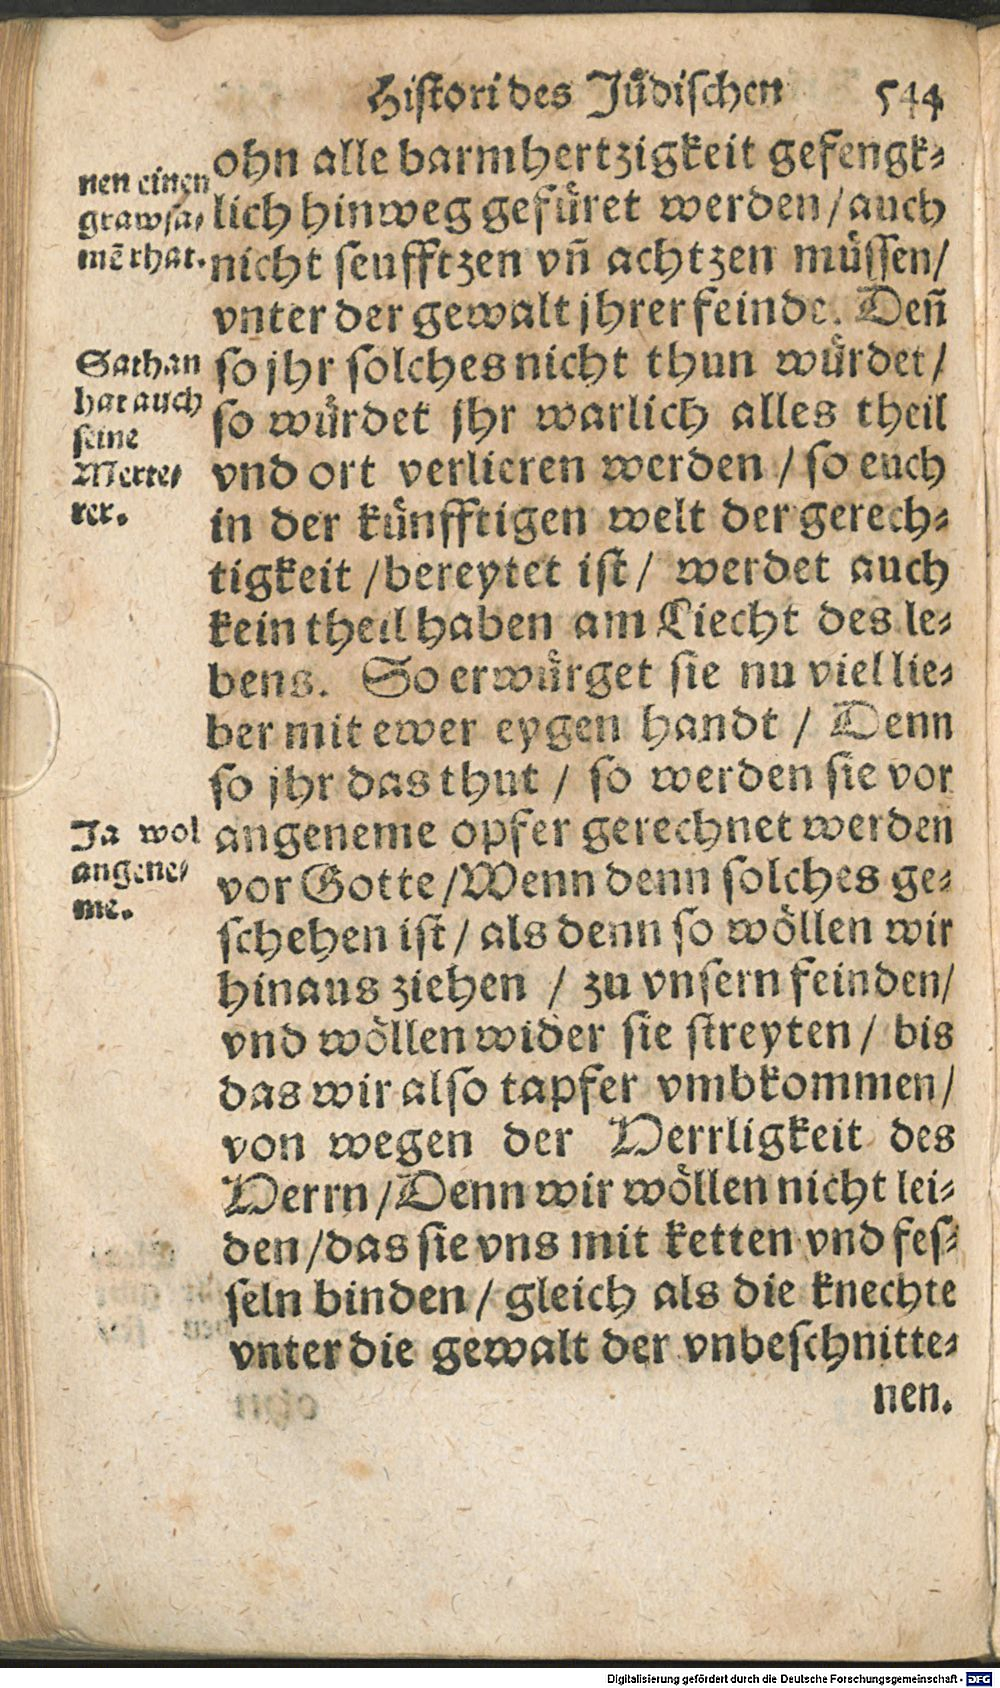 Histori des Jüdischen 544
nen einen
grawsa-
mē rhat.
Sathan
hat auch
seine
Merte-
rer.
Ja wol
angene-
me.
ohn alle barmhertzigkeit gefengk-
lich hinweg gefüret werden / auch
nicht seufftzen vñ achtzen müssen /
vnter der gewalt jhrer feinde. Deñ
so jhr solches nicht thun würdet /
so würdet jhr warlich alles theil
vnd ort verlieren werden / so euch
in der künfftigen welt der gerech-
tigkeit / bereytet ist / werdet auch
kein theil haben am Liecht des le-
bens. So erwürget sie nu viel lie-
ber mit ewer eygen handt / Denn
so jhr das thut / so werden sie vor
angeneme opfer gerechnet werden
vor Gotte / Wenn denn solches ge-
schehen ist / als denn so wöllen wir
hinaus ziehen / zu vnsern feinden /
vnd wöllen wider sie streyten / bis
das wir also tapfer vmbkommen /
von wegen der Herrligkeit des
Herrn / Denn wir wöllen nicht lei-
den / das sie vns mit ketten vnd fes-
seln binden / gleich als die knechte
vnter die gewalt der vnbeschnitte-
nen.
Digitalisierung gefördert durch die Deutsche Forschungsgemeinschaft - DFG